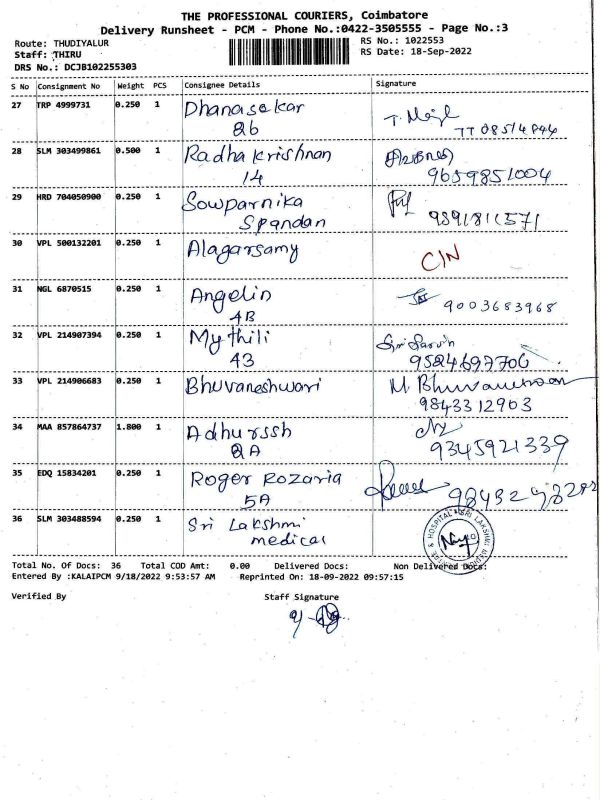 THE PROFESSIONAL COURIERS, Coimbatore
Delivery Runsheet - PCM - Phone No.:0422-3505555 - Page No.:3
Route: THUDIYALUR RS No.: 1022553
Staff: THIRU RS Date: 18-Sep-2022
DRS No.: DCJB102255303
S No Consignment No Weight PCS Consignee Details Signature
27 TRP 4999731 0.250 1 Dhanasekar
2b
28 SLM 303499861 0.500 1 Radha Krishnan
14 9659851004
29 HRD 704050900 0.250 1 Sowparnika
Spandan 9891811571
30 VPL 500132201 0.250 1 Alagarsamy C/N
31 NGL 6870515 0.250 1 Angelin
4B 9003683968
32 VPL 214907394 0.250 1 Mythili
43 9524697706
33 VPL 214906683 0.250 1 Bhuvaneshwari M. Bhuvaneshwari
9843312903
34 MAA 857864737 1.800 1 Adhurssh
2A 9345921339
35 EDQ 15834201 0.250 1 Roger Rozaria
5A
36 SLM 303488594 0.250 1 Sri Lakshmi
medical
Total No. Of Docs: 36 Total COD Amt: 0.00 Delivered Docs: Non Delivered Docs:
Entered By :KALAIPCM 9/18/2022 9:53:57 AM Reprinted On: 18-09-2022 09:57:15
Verified By Staff Signature